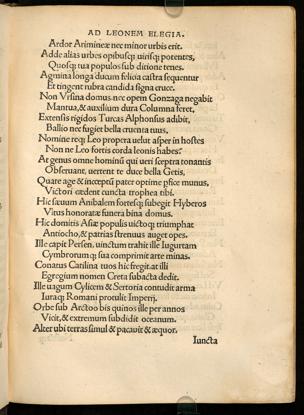 AD LEONEM ELEGIA.
Ardor Arimineæ nec minor urbis erit.
Adde alias urbes opibusq; uirisq; potentes,
Quosq; tua populos sub ditione tenes.
Agmina longa ducum felicia castra sequentur
Et tingent rubra candida signa cruce.
Non Vrsina domus nec opem Gonzaga negabit
Mantus, & auxilium dura Columna feret,
Extensis rigidos Turcas Alphonsus adibit,
Ballio nec fugiet bella cruenta tuus,
Nomine req; Leo propera uelut asper in hostes
Non ne Leo fortis corda leonis habes?
At genus omne hominū qui ueri sceptra tonantis
Obseruant, uertent te duce bella Getis,
Quare age & susceptū pater optime pſice munus,
Victori cędent cuncta trophea tibi.
Hic sæuum Anibalem fortesq; subegit Hyberos
Virus honoratæ funera bina domus.
Hic domitis Asię populis uictoq; triumphat
Antiocho, & patrias strenuus auget opes.
Ille capit Persen, uinctum trahit ille Iugurtam
Cymbrorumq; sua comprimit arte minas.
Conatus Catilina tuos hic fregit at illi
Egregium nomen Creta subacta dedit.
Ille uagum Cylicem & Sertoria contudit arma
Iuraq; Romani protulit Imperij.
Orbe sub Arctoo bis quinos ille per annos
Vicit, & extremum subdidit oceanum.
Alter ubi terras simul & pacauit & æquor.
Iuncta